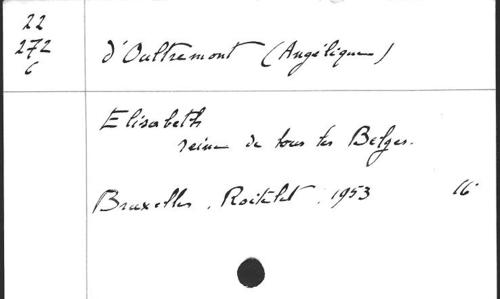 22
272
6
d'Oultremont (Angélique)
Elisabeth
reine de tous les Belges.
Bruxelles, Roitelet, 1953 16°